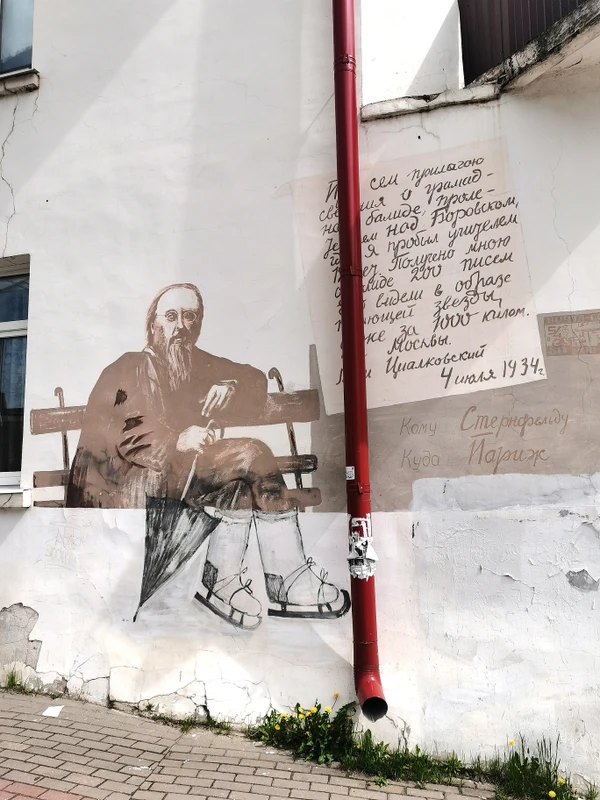 сем прилагаю
о грамад-
балиде, проле-
над Боровском,
я пробыл учителем
Получено мною
200 писем
видем в образе
звезды,
за 1000 килом.
Москвы.
Циалковский
4 июля 1934г.
Кому Стернфельду
Куда Париж